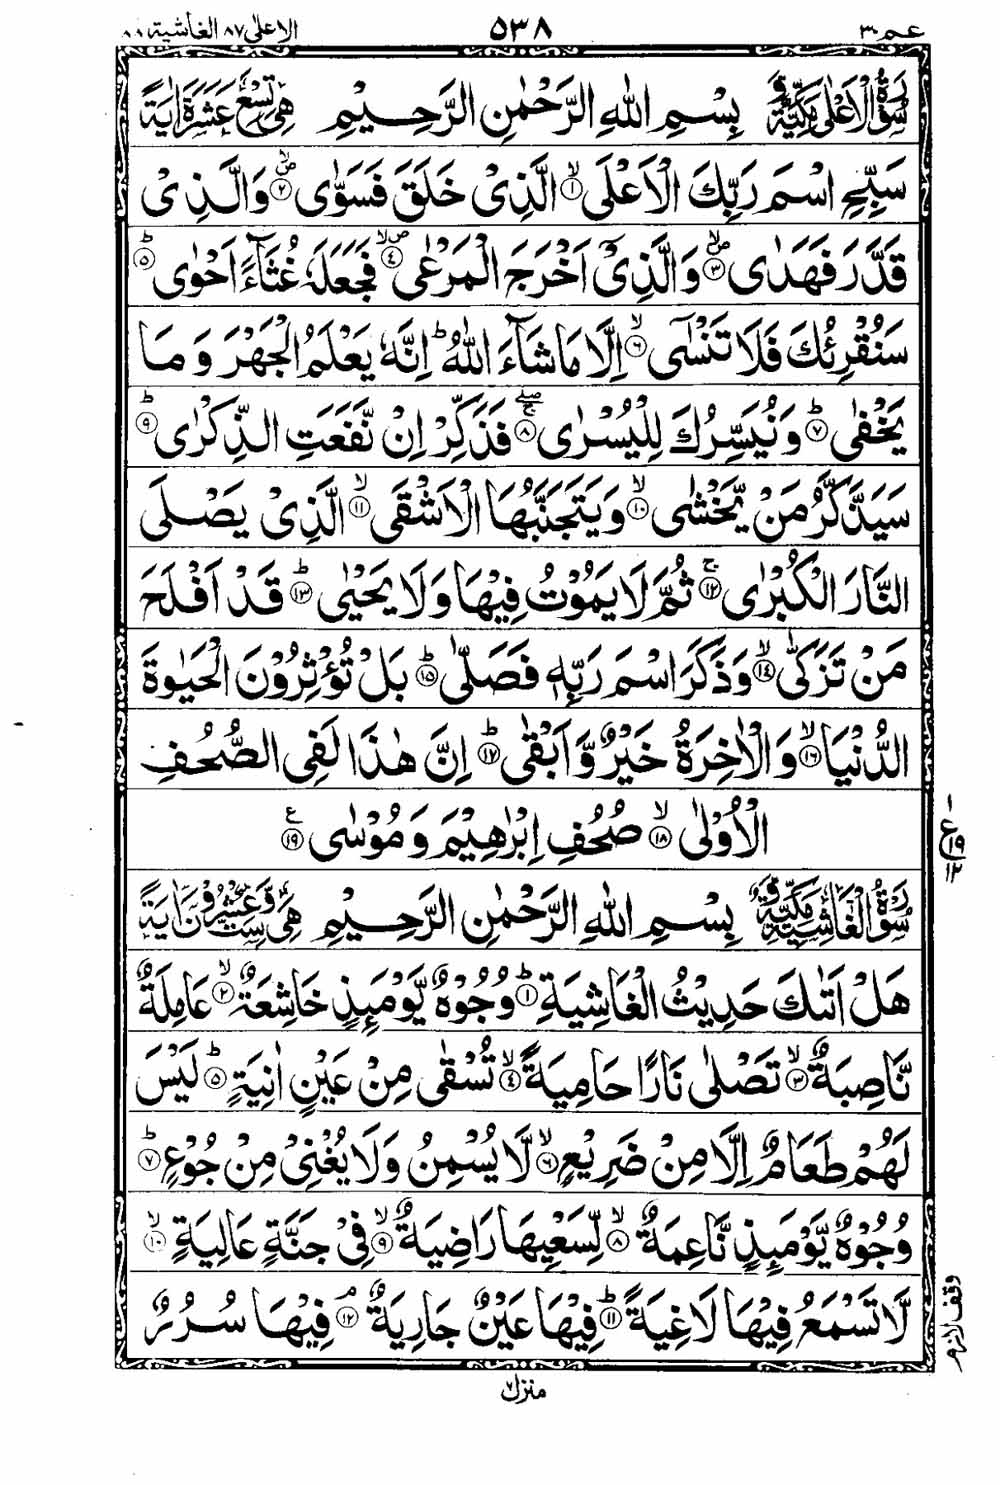 عم ٣٠ ٥٣٨ الاعلى ٨٧ الغاشية ٨٨
سُوْرَةُ الْاَعْلٰى مَكِّيَّةٌ بِسْمِ اللهِ الرَّحْمٰنِ الرَّحِيْمِ هِيَ تِسْعَ عَشَرَةَ اٰيَةً
سَبِّحِ اسْمَ رَبِّكَ الْاَعْلَى ۙ﴿١﴾ الَّذِيْ خَلَقَ فَسَوّٰى ۪ۙ﴿٢﴾ وَالَّذِيْ
قَدَّرَ فَهَدٰى ۪ۙ﴿٣﴾ وَالَّذِيْٓ اَخْرَجَ الْمَرْعٰى ۪ۙ﴿٤﴾ فَجَعَلَهٗ غُثَآءً اَحْوٰى ؕ﴿٥﴾
سَنُقْرِئُكَ فَلَا تَنْسٰٓى ۙ﴿٦﴾ اِلَّا مَا شَآءَ اللهُ ؕ اِنَّهٗ يَعْلَمُ الْجَهْرَ وَ مَا
يَخْفٰى ؕ﴿٧﴾ وَنُيَسِّرُكَ لِلْيُسْرٰى ۚۖ﴿٨﴾ فَذَكِّرْ اِنْ نَّفَعَتِ الذِّكْرٰى ؕ﴿٩﴾
سَيَذَّكَّرُ مَنْ يَّخْشٰى ۙ﴿١٠﴾ وَيَتَجَنَّبُهَا الْاَشْقَى ۙ﴿١١﴾ الَّذِيْ يَصْلَى
النَّارَ الْكُبْرٰى ۚ﴿١٢﴾ ثُمَّ لَا يَمُوْتُ فِيْهَا وَلَا يَحْيٰى ؕ﴿١٣﴾ قَدْ اَفْلَحَ
مَنْ تَزَكّٰى ۙ﴿١٤﴾ وَذَكَرَ اسْمَ رَبِّهٖ فَصَلّٰى ؕ﴿١٥﴾ بَلْ تُؤْثِرُوْنَ الْحَيٰوةَ
الدُّنْيَا ۙ﴿١٦﴾ وَالْاٰخِرَةُ خَيْرٌ وَّاَبْقٰى ؕ﴿١٧﴾ اِنَّ هٰذَا لَفِي الصُّحُفِ
الْاُوْلٰى ۙ﴿١٨﴾ صُحُفِ اِبْرٰهِيْمَ وَ مُوْسٰى ﴿١٩﴾ ع
ع ١٩ ١٢
سُوْرَةُ الْغَاشِيَةِ مَكِّيَّةٌ بِسْمِ اللهِ الرَّحْمٰنِ الرَّحِيْمِ هِيَ سِتٌّ وَّعِشْرُوْنَ اٰيَةً
هَلْ اَتٰىكَ حَدِيْثُ الْغَاشِيَةِ ؕ﴿١﴾ وُجُوْهٌ يَّوْمَئِذٍ خَاشِعَةٌ ۙ﴿٢﴾ عَامِلَةٌ
نَّاصِبَةٌ ۙ﴿٣﴾ تَصْلٰى نَارًا حَامِيَةً ۙ﴿٤﴾ تُسْقٰى مِنْ عَيْنٍ اٰنِيَةٍ ؕ﴿٥﴾ لَيْسَ
لَهُمْ طَعَامٌ اِلَّا مِنْ ضَرِيْعٍ ۙ﴿٦﴾ لَّا يُسْمِنُ وَلَا يُغْنِيْ مِنْ جُوْعٍ ؕ﴿٧﴾
وُجُوْهٌ يَّوْمَئِذٍ نَّاعِمَةٌ ۙ﴿٨﴾ لِّسَعْيِهَا رَاضِيَةٌ ۙ﴿٩﴾ فِيْ جَنَّةٍ عَالِيَةٍ ۙ﴿١٠﴾
لَّا تَسْمَعُ فِيْهَا لَاغِيَةً ؕ﴿١١﴾ فِيْهَا عَيْنٌ جَارِيَةٌ ۘ﴿١٢﴾ فِيْهَا سُرُرٌ
وقف لازم
منزل ٧